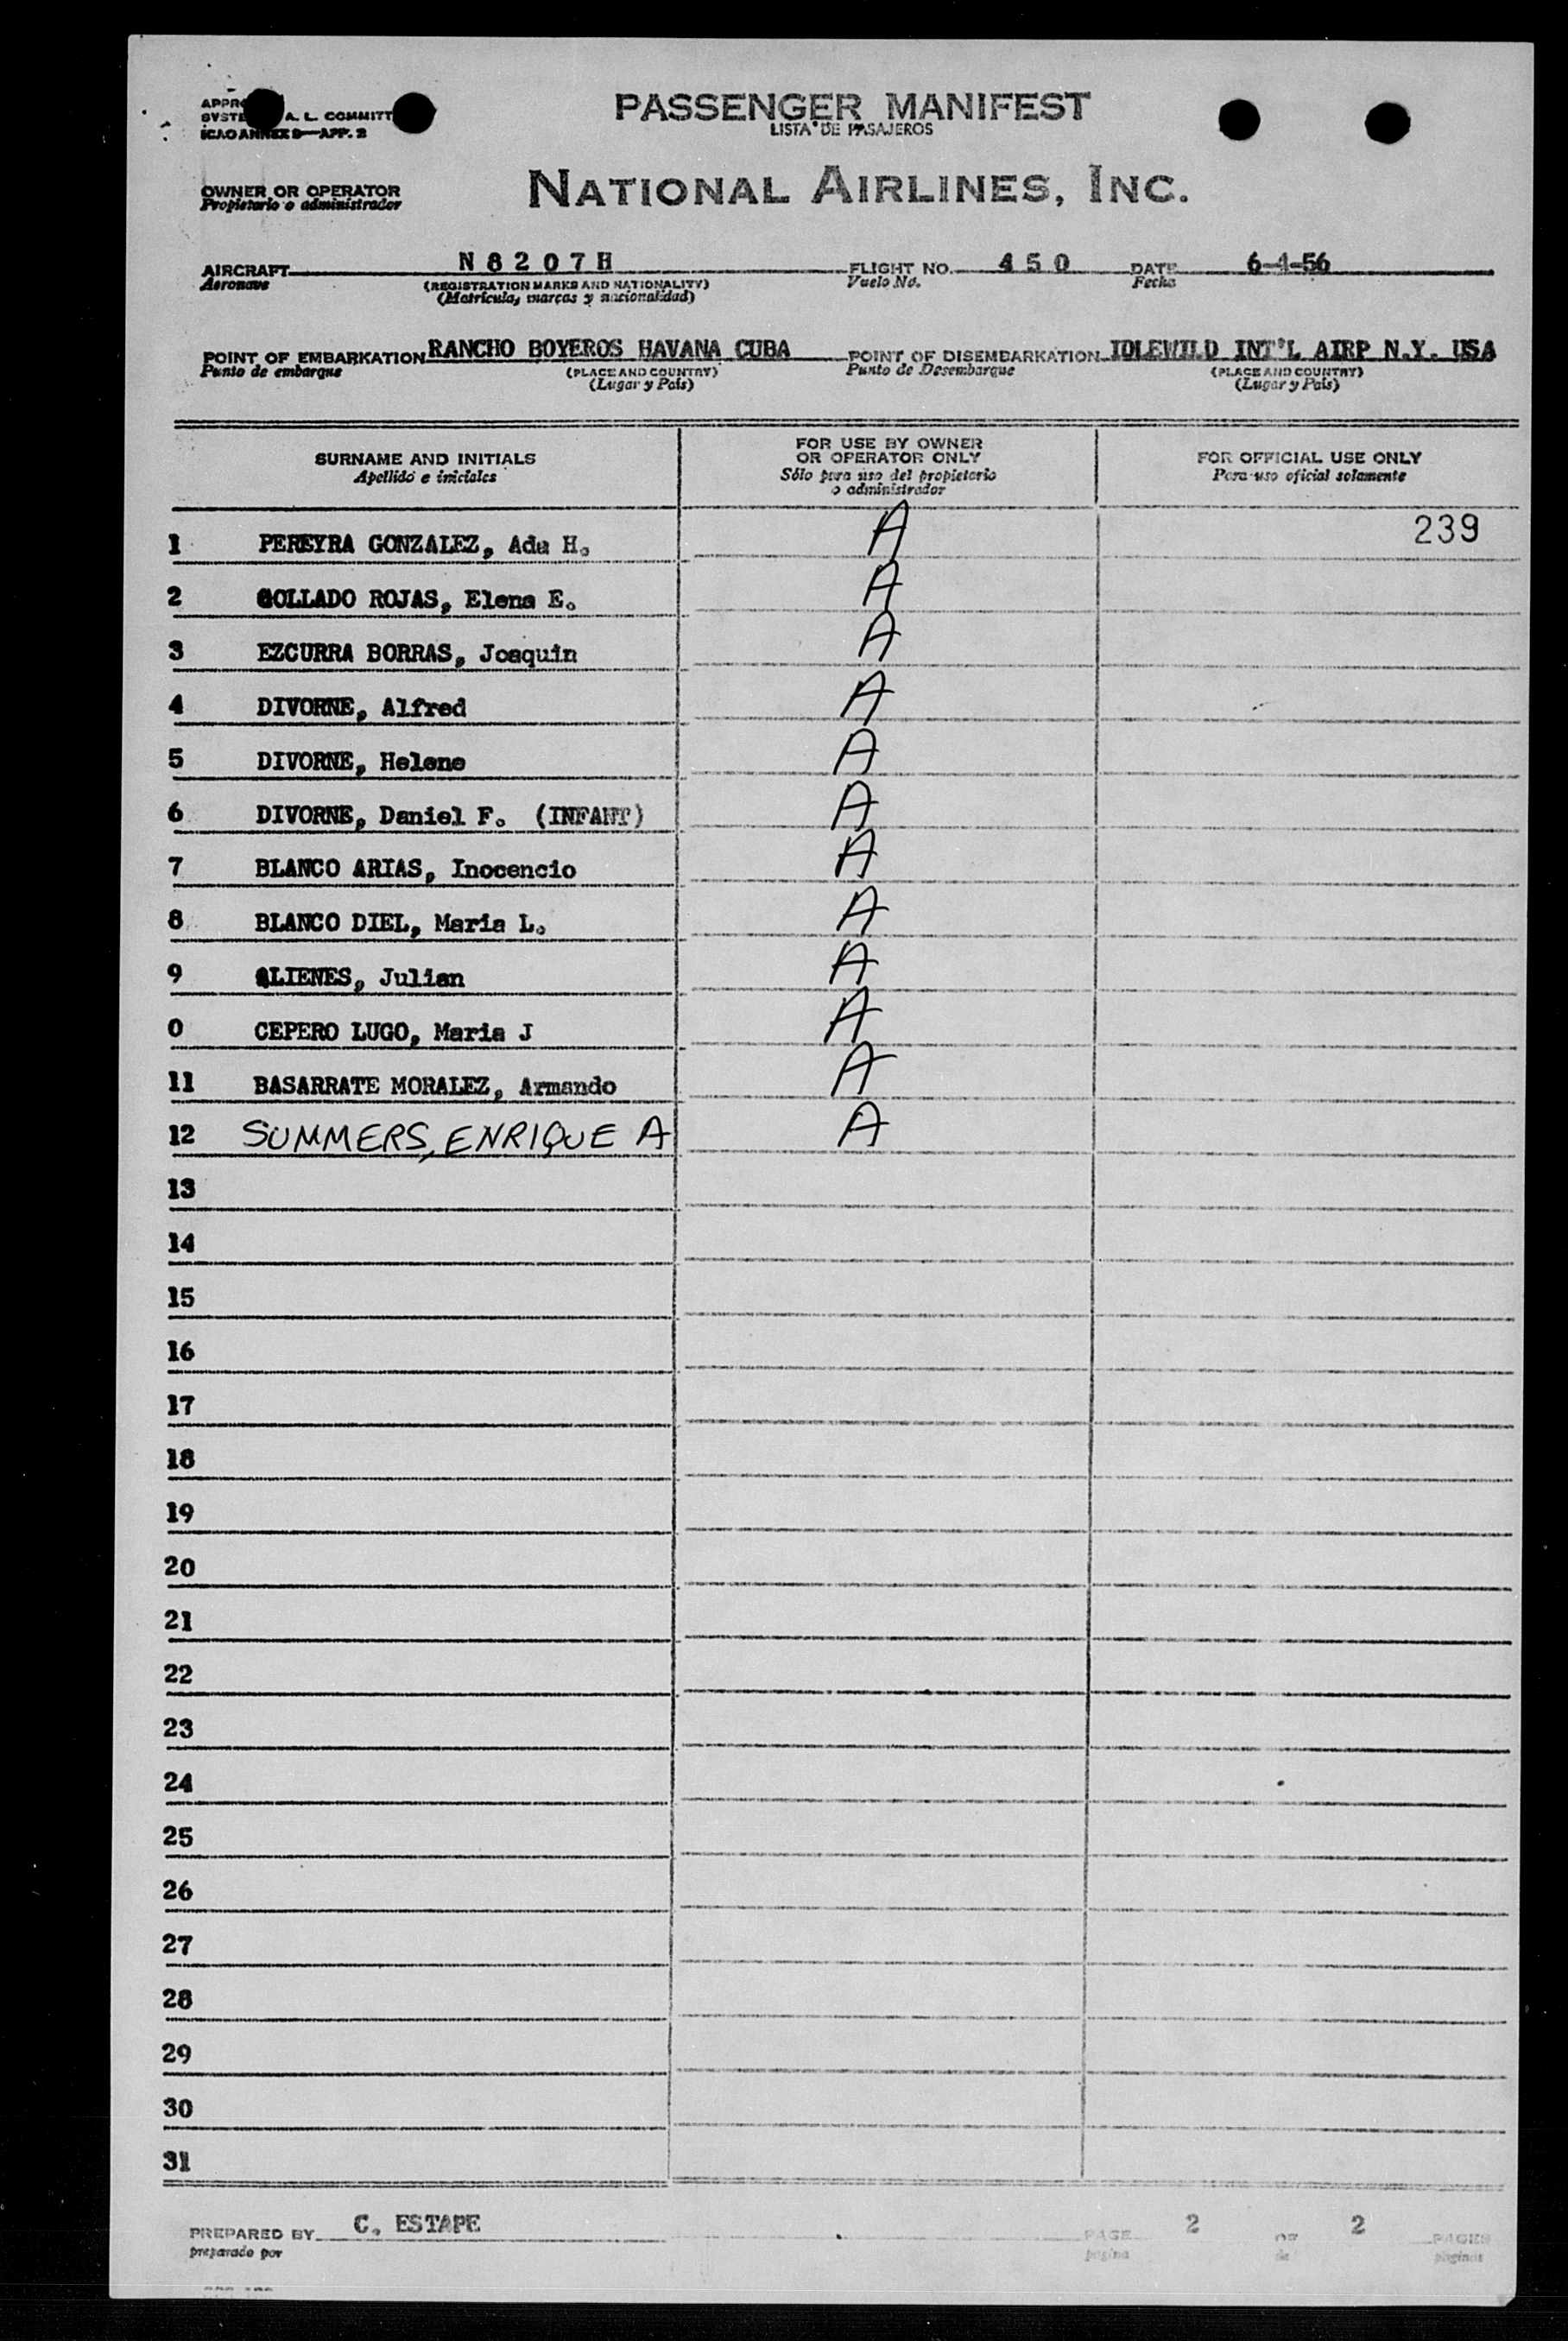 PASSENGER MANIFEST
LISTA DE PASAJEROS
A. L. COMMITT
ICAO ANNEX 9—APP. 2
OWNER OR OPERATOR
Propietario o administrador
NATIONAL AIRLINES, INC.
AIRCRAFT N 8 2 0 7 H FLIGHT NO. 4 5 0 DATE 6-4-56
Aeronave (REGISTRATION MARKS AND NATIONALITY) Vuelo No. Fecha
(Matrícula, marcas y nacionalidad)
POINT OF EMBARKATION RANCHO BOYEROS HAVANA CUBA POINT OF DISEMBARKATION IDLEWILD INT'L AIRP N.Y. USA
Punto de embarque (PLACE AND COUNTRY) Punto de Desembarque (PLACE AND COUNTRY)
(Lugar y País) (Lugar y País)
SURNAME AND INITIALS
Apellido e iniciales
FOR USE BY OWNER
OR OPERATOR ONLY
Sólo para uso del propietario
o administrador
FOR OFFICIAL USE ONLY
Para uso oficial solamente
1 PEREYRA GONZALEZ, Ada H. A 239
2 COLLADO ROJAS, Elena E. A
3 EZCURRA BORRAS, Joaquin A
4 DIVORNE, Alfred A
5 DIVORNE, Helene A
6 DIVORNE, Daniel F. (INFANT) A
7 BLANCO ARIAS, Inocencio A
8 BLANCO DIEL, Maria L. A
9 ALIENES, Julian A
0 CEPERO LUGO, Maria J A
11 BASARRATE MORALEZ, Armando A
12 SUMMERS, ENRIQUE A A
13
14
15
16
17
18
19
20
21
22
23
24
25
26
27
28
29
30
31
PREPARED BY C. ESTAPE PAGE 2 OF 2 PAGES
preparado por página de páginas